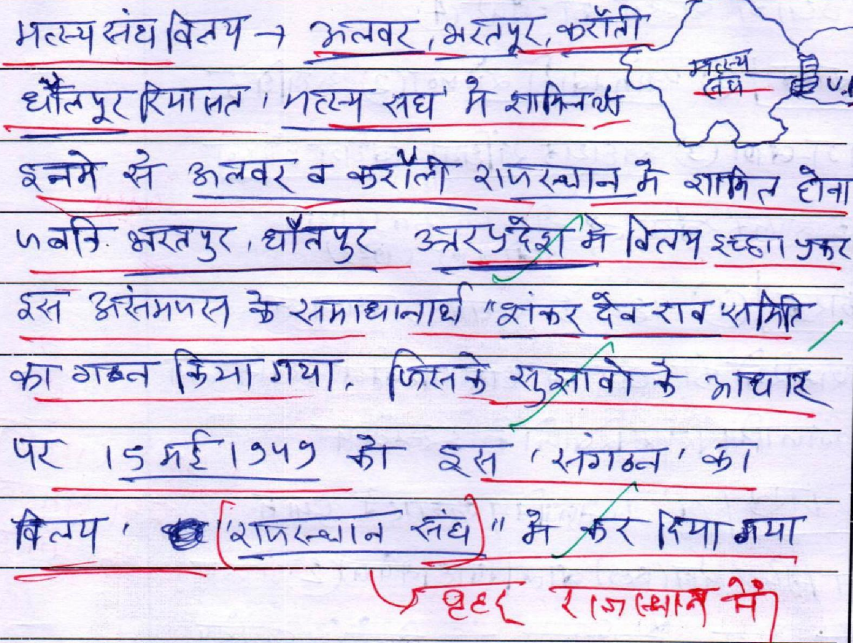 मत्स्य संघ विलय → अलवर, भरतपुर, करौली
धौलपुर रियासत 'मत्स्य संघ' मे शामिल थे
मत्स्य संघ U.
इनमे से अलवर व करौली राजस्थान मे शामिल होना
जबकि भरतपुर, धौलपुर उत्तरप्रदेश मे विलय इच्छा प्रकट
इस असंमजस के समाधानार्थ "शंकर देव राव समिति
का गठन किया गया. जिसके सुझावो के आधार
पर 15 मई 1949 को इस 'संगठन' का
विलय ' "राजस्थान संघ" मे कर दिया गया
→ वृहद राजस्थान में